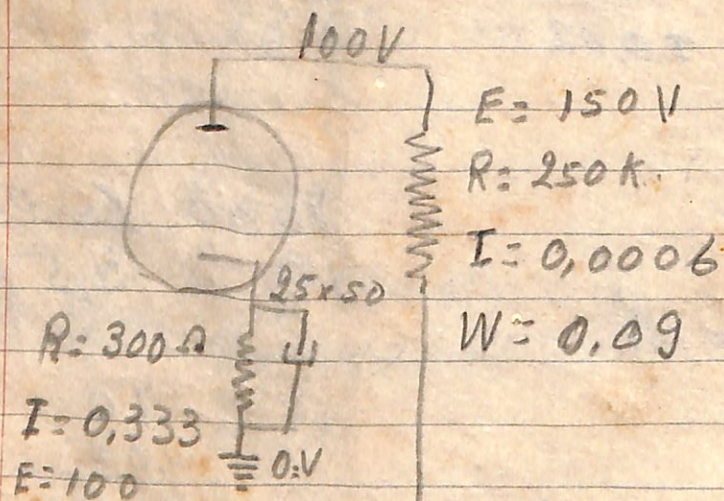 100V
E= 150V
R= 250K.
I= 0,0006
W= 0.09
25x50
R= 300Ω
I= 0,333
E= 100
0:V